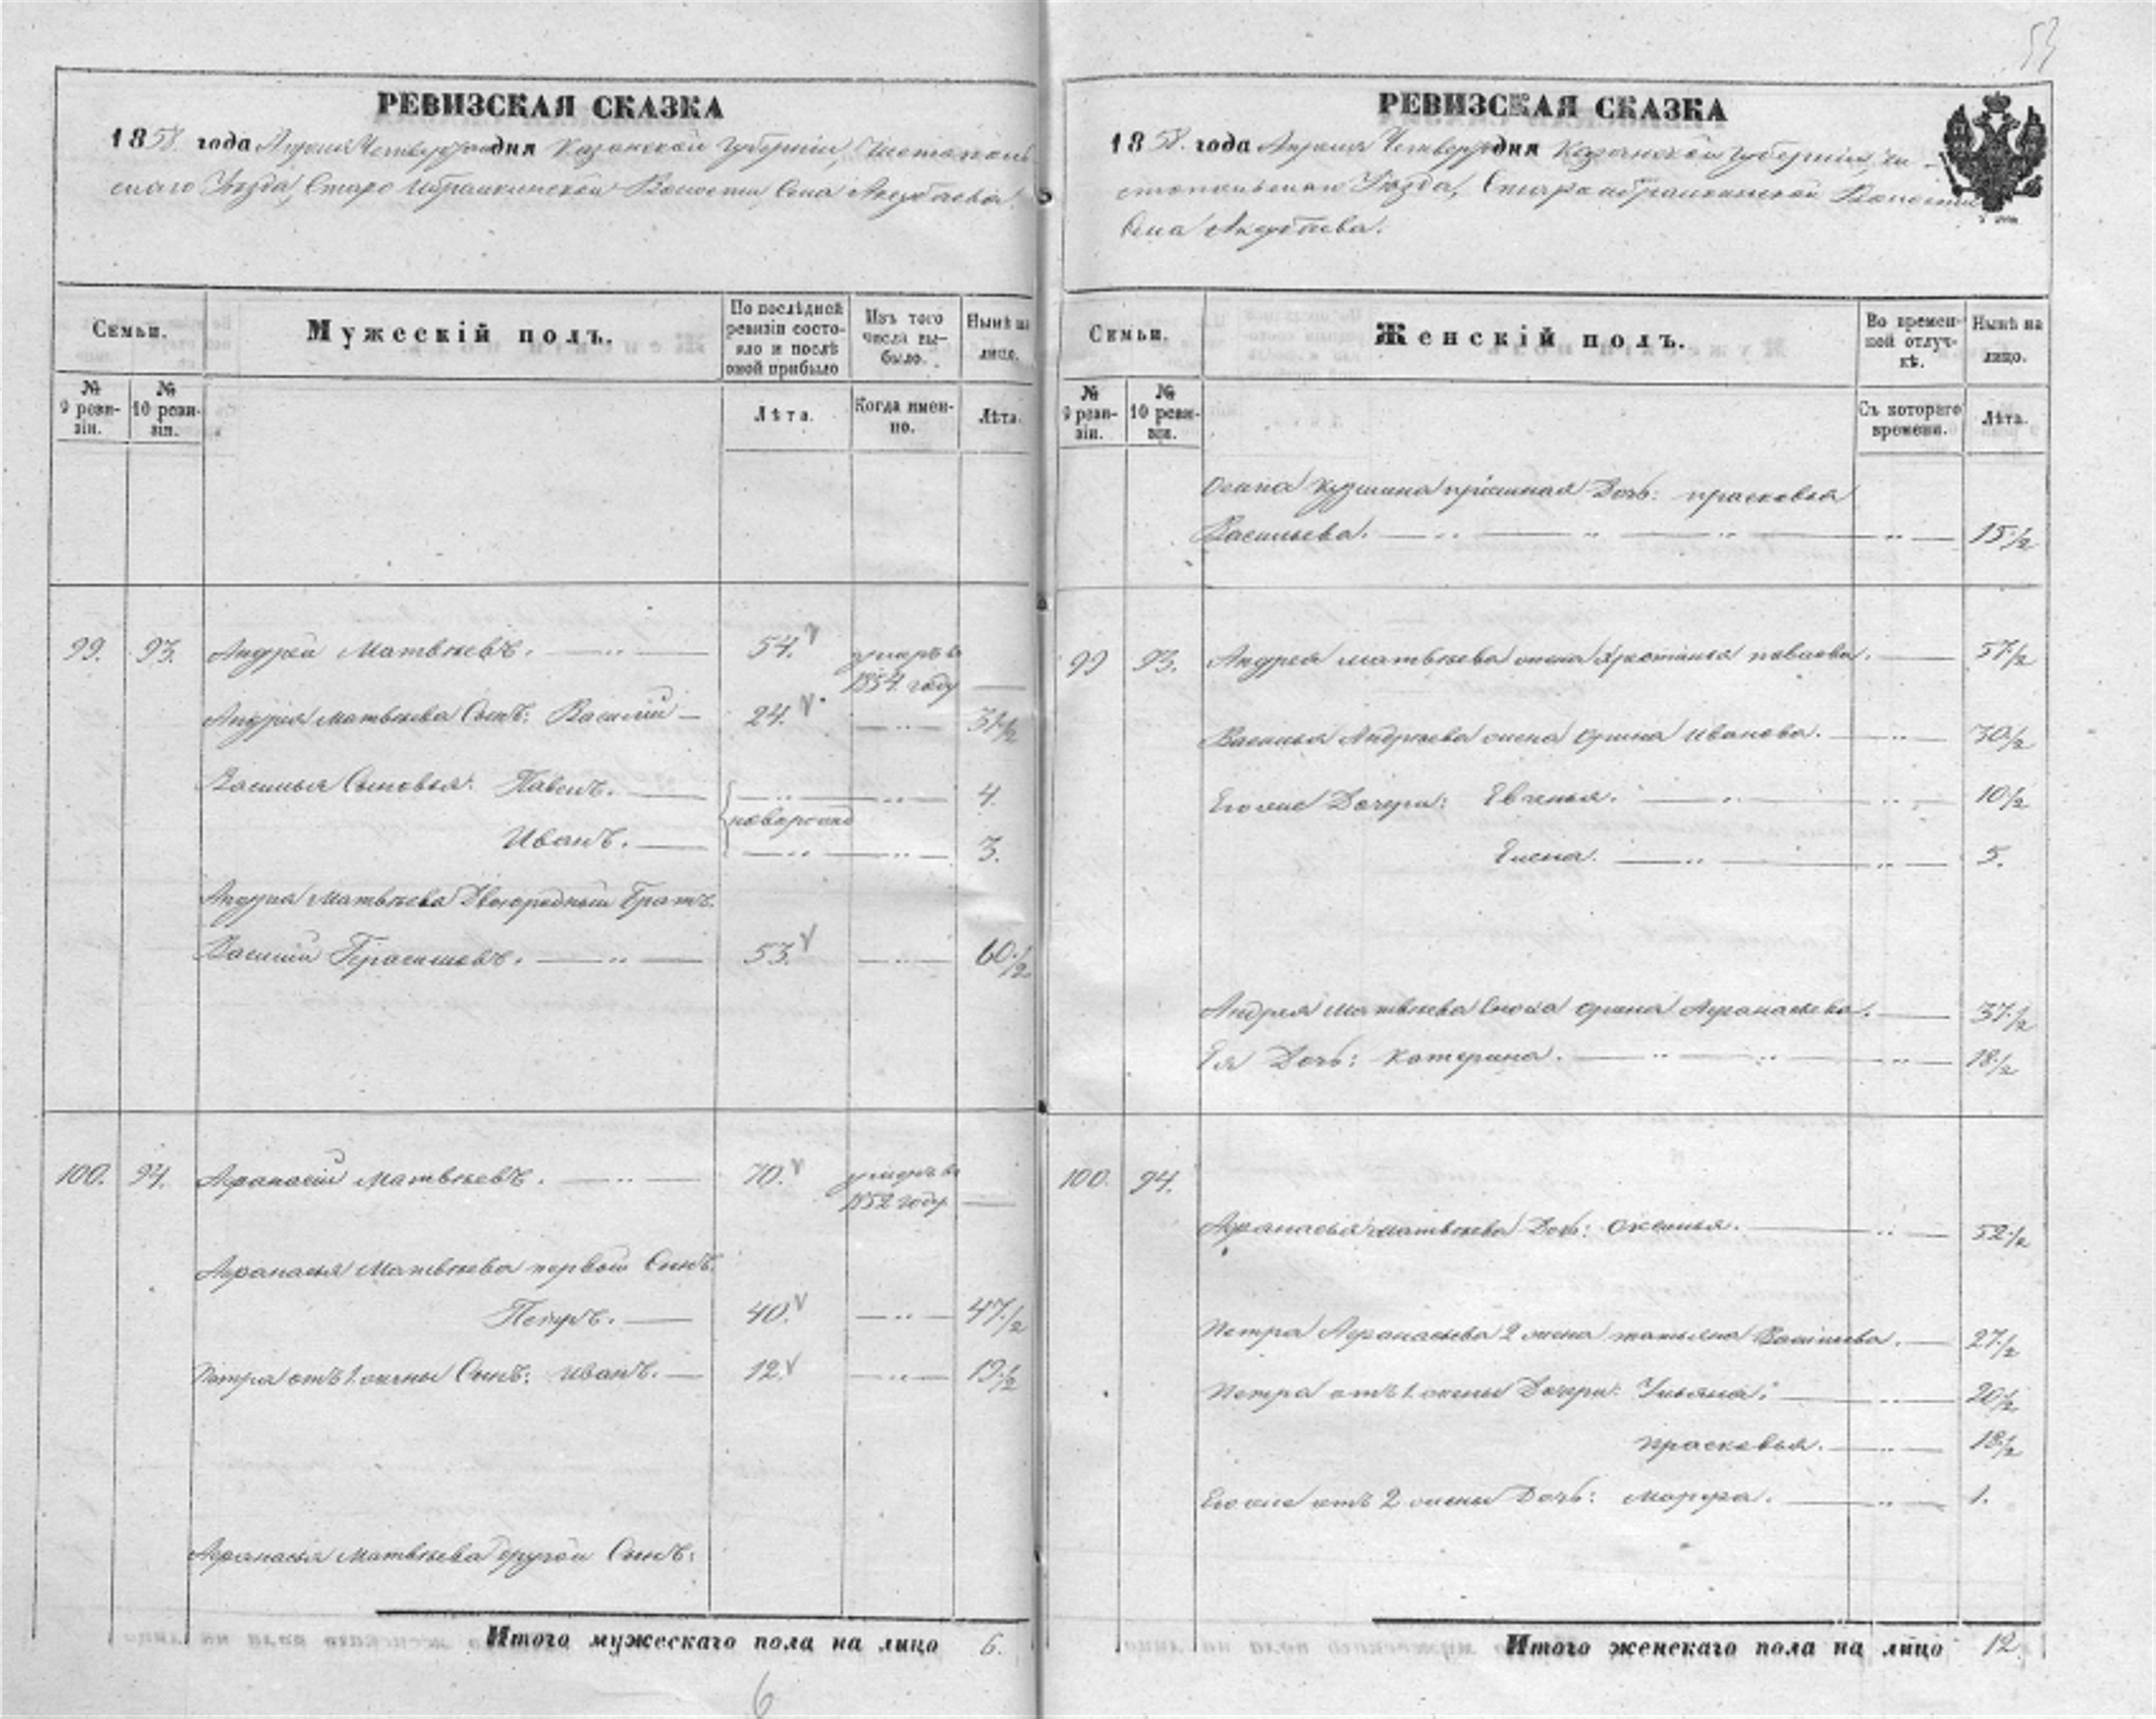 53
РЕВИЗСКАЯ СКАЗКА
1858 года Апреля Четвертого дня Казанской Губернии, Чистополь-
скаго Уезда, Старо Ибрайкинской Волости Села Аксубаева.
Семьи.
Мужескій полъ.
По послѣдней ревизіи состояло и послѣ оной прибыло
Изъ того числа выбыло.
Нынѣ на лицо.
№ 9 ревизіи.
№ 10 ревизіи.
Лѣта.
Когда именно.
Лѣта.
99. 93. Андрей Матвѣевъ. 54. умеръ в
1854. году
Андрея Матвѣева Сынъ: Василій 24. 31 1/2
Василья Сыновья: Павелъ. 4.
новорожд
Иванъ. 3.
Андрея Матвѣева Двоюродный Братъ
Василій Герасимовъ. 53. 60 1/2
100. 94. Афанасій Матвѣевъ. 70. умеръ в
1852 году
Афанасья Матвѣева первой Сынъ
Петръ. 40. 47 1/2
Петра отъ 1. жены Сынъ: Иванъ. 12. 19 1/2
Афанасья Матвѣева другой Сынъ:
Итого мужескаго пола на лицо 6.
6
РЕВИЗСКАЯ СКАЗКА
1858. года Апреля Четвертого дня Казанской Губерніи, Чи-
стопольскаго Уезда, Старо Ибрайкинской Волости
Села Аксубаева.
Семьи.
Женскій полъ.
Во временной отлучкѣ.
Нынѣ на лицо.
№ 9 ревизіи.
№ 10 ревизіи.
Съ котораго времени.
Лѣта.
Осипа Кузмина пріемная Дочь: Прасковья
Васильева. 15 1/2
99 93. Андрея Матвѣева жена Христинья 57 1/2
Василья Андрѣева жена Орина Иванова. 30 1/2
Его же Дочери: Евгенья. 10 1/2
Елена. 5.
Андрея Матвѣева Сноха Орина Афанасьева. 37 1/2
Ея Дочь: Катерина. 18 1/2
100. 94.
Афанасья Матвѣева Дочь: Оксинья. 52 1/2
Петра Афанасьева 2 жена Татьяна Васильева. 27 1/2
Петра отъ 1. жены Дочери: Ульяна. 20 1/2
Прасковья. 18 1/2
Его же отъ 2 жены Дочь: Марфа. 1.
Итого женскаго пола на лицо 12.